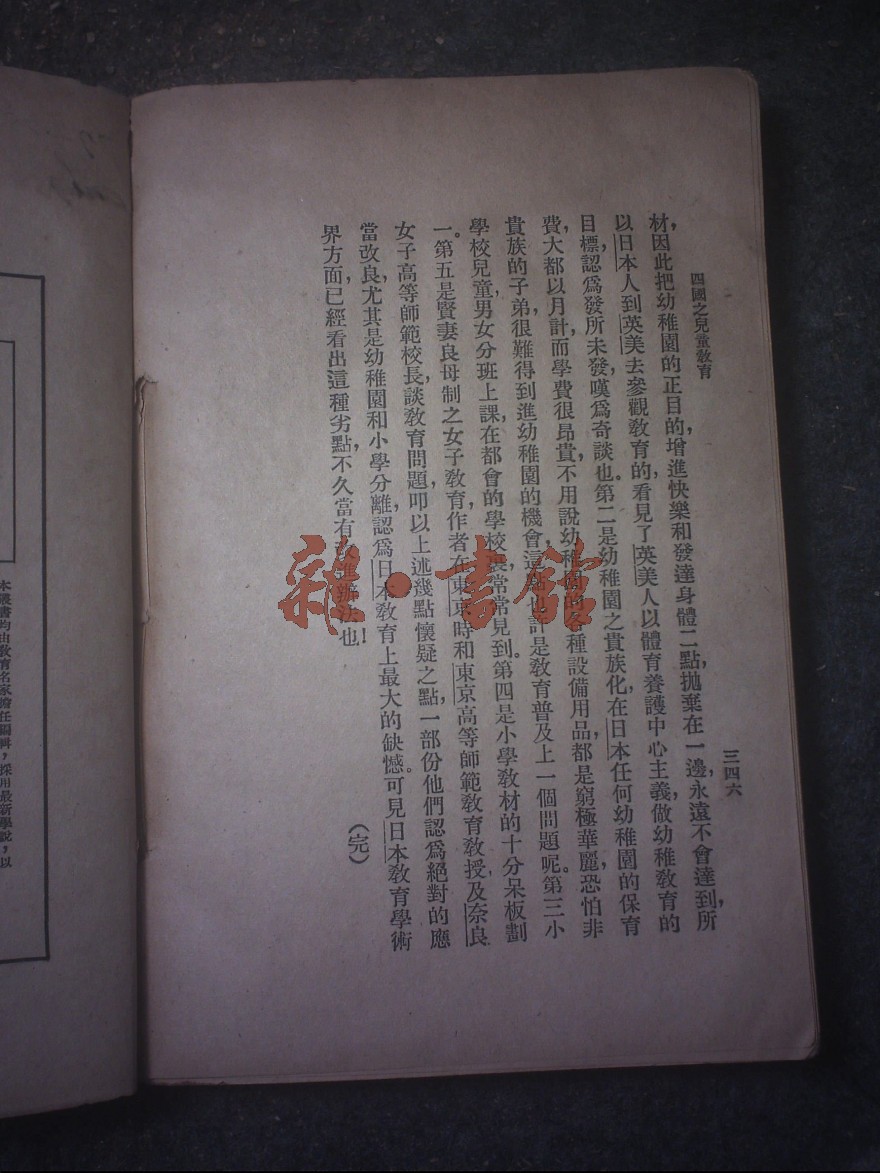 四國之兒童教育
三四六
材,因此把幼稚園的正目的,增進快樂和發達身體二點,拋棄在一邊,永遠不會達到,所
以日本人到英美去參觀教育的,看見了英美人以體育養護中心主義,做幼稚教育的
目標,認爲發所未發,嘆爲奇談也。第二是幼稚園之貴族化,在日本任何幼稚園的保育
費,大都以月計,而學費很昂貴,不用說幼稚園的各種設備用品,都是窮極華麗,恐怕非
貴族的子弟,很難得到進幼稚園的機會,這點也許是教育普及上一個問題呢。第三小
學校兒童,男女分班上課,在都會的學校裏,常常見到。第四是小學教材的十分呆板劃
一。第五是賢妻良母制之女子教育,作者在東京時,和東京高等師範教育教授,及奈良
女子高等師範校長,談教育問題,叩以上述幾點懷疑之點,一部份他們認爲絕對的應
當改良,尤其是幼稚園和小學分離,認爲日本教育上最大的缺憾。可見日本教育學術
界方面,已經看出這種劣點,不久當有改進辦法也!
(完)
本叢書均由教育名家擔任編輯,採用最新學說,以
雜·書館